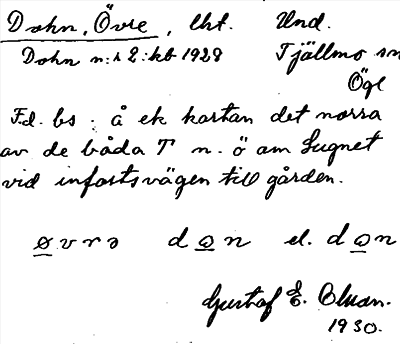 Dohn, Övre, lht. Und.
Dohn n:r 2: kb 1929 Tjällmo sn
Ögl
F.d. bs: å ek kartan det norra
av de båda T n. ö om Lugnet
vid infartsvägen till gården.
øvrə dωn el. dωn
Gustaf E. Oluan.
1930.